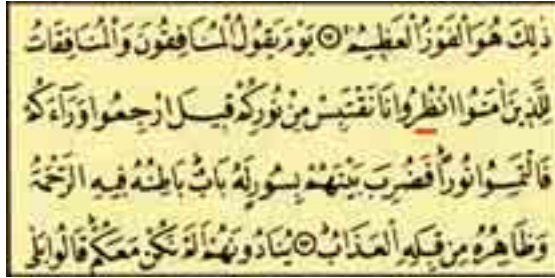 ذَٰلِكَ هُوَ ٱلْفَوْزُ ٱلْعَظِيمُ ۝ يَوْمَ يَقُولُ ٱلْمُنَافِقُونَ وَٱلْمُنَافِقَاتُ
لِلَّذِينَ اٰمَنُوا ٱنْظُرُونَا نَقْتَبِسْ مِنْ نُورِكُمْ قِيلَ ٱرْجِعُوا وَرَٓاءَكُمْ
فَٱلْتَمِسُوا نُورًا فَضُرِبَ بَيْنَهُمْ بِسُورٍ لَهُ بَابٌ بَاطِنُهُ فِيهِ ٱلرَّحْمَةُ
وَظَاهِرُهُ مِنْ قِبَلِهِ ٱلْعَذَابُ ۝ يُنَادُونَهُمْ أَلَمْ نَكُنْ مَعَكُمْ قَالُوا بَلٰى